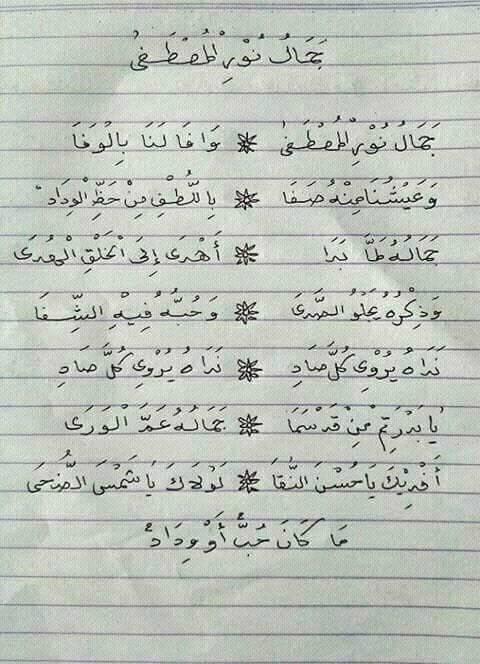 جَمَالُ نُوْرِ الْمُصْطَفَى
جَمَالُ نُوْرِ الْمُصْطَفَى ❋ وَافَا لَنَا بِالْوَفَا
وَعَيْشُنَا مِنْهُ صَفَا ❋ بِاللُّطْفِ مِنْ حَظِّ الْوِدَادْ
جَمَالُهُ طَمَّا بَدَا ❋ أَهْدَى إِلَى الْخَلْقِ الْهُدَى
وَذِكْرُهُ يَجْلُو الصَّدَى ❋ وَحُبُّهُ فِيْهِ الشِّفَا
نَدَاهُ يُرْوِي كُلَّ صَادِ ❋ نَدَاهُ يُرْوِي كُلَّ صَادِ
يَا بَدْرَ تِمٍّ مِنْ قَدْ سَمَا ❋ جَمَالُهُ عَمَّ الْوَرَى
أَفْدِيْكَ يَا حُسْنَ النَّقَا ❋ لَوْلَاكَ يَا شَمْسَ الضُّحَى
مَا كَانَ حُبٌّ أَوْ وِدَادْ